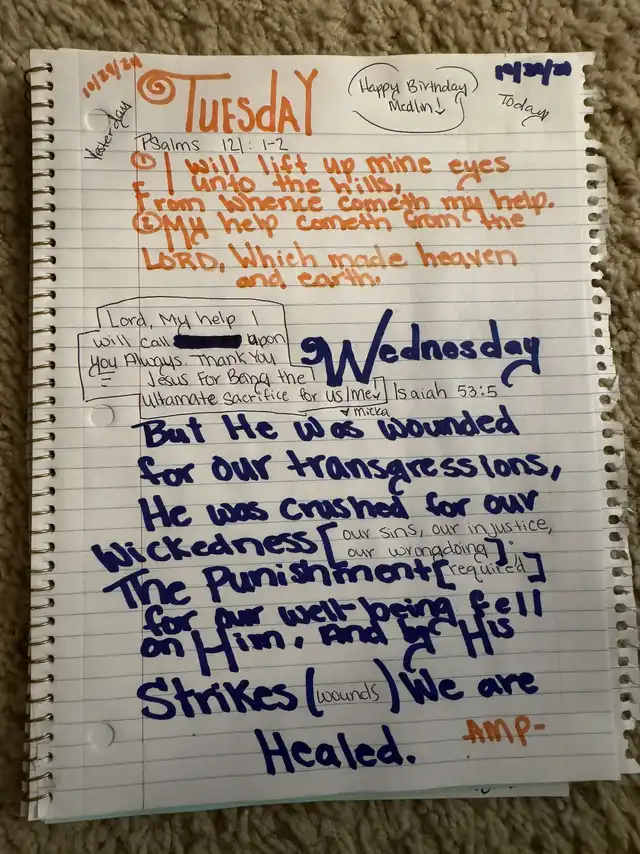 10/29/24
Yesterday
TUESdAY
Happy Birthday
10/30/24
Today
Psalms 121: 1-2
① I will lift up mine eyes
unto the hills,
From whence cometh my help.
② My help cometh from the
LORD, Which made heaven
and earth.
Lord, My help I
will call upon
you Always. Thank You
Jesus For Being the
Ultamate Sacrifice for us/me
♥ Micka
Wednesday
Isaiah 53:5
But He was wounded
for our transgressions,
He was crushed for our
Wickedness [our sins, our injustice,
our wrongdoing];
The Punishment [required]
for our well-being fell
on Him, And by His
Strikes (wounds) We are
Healed.
AMP-